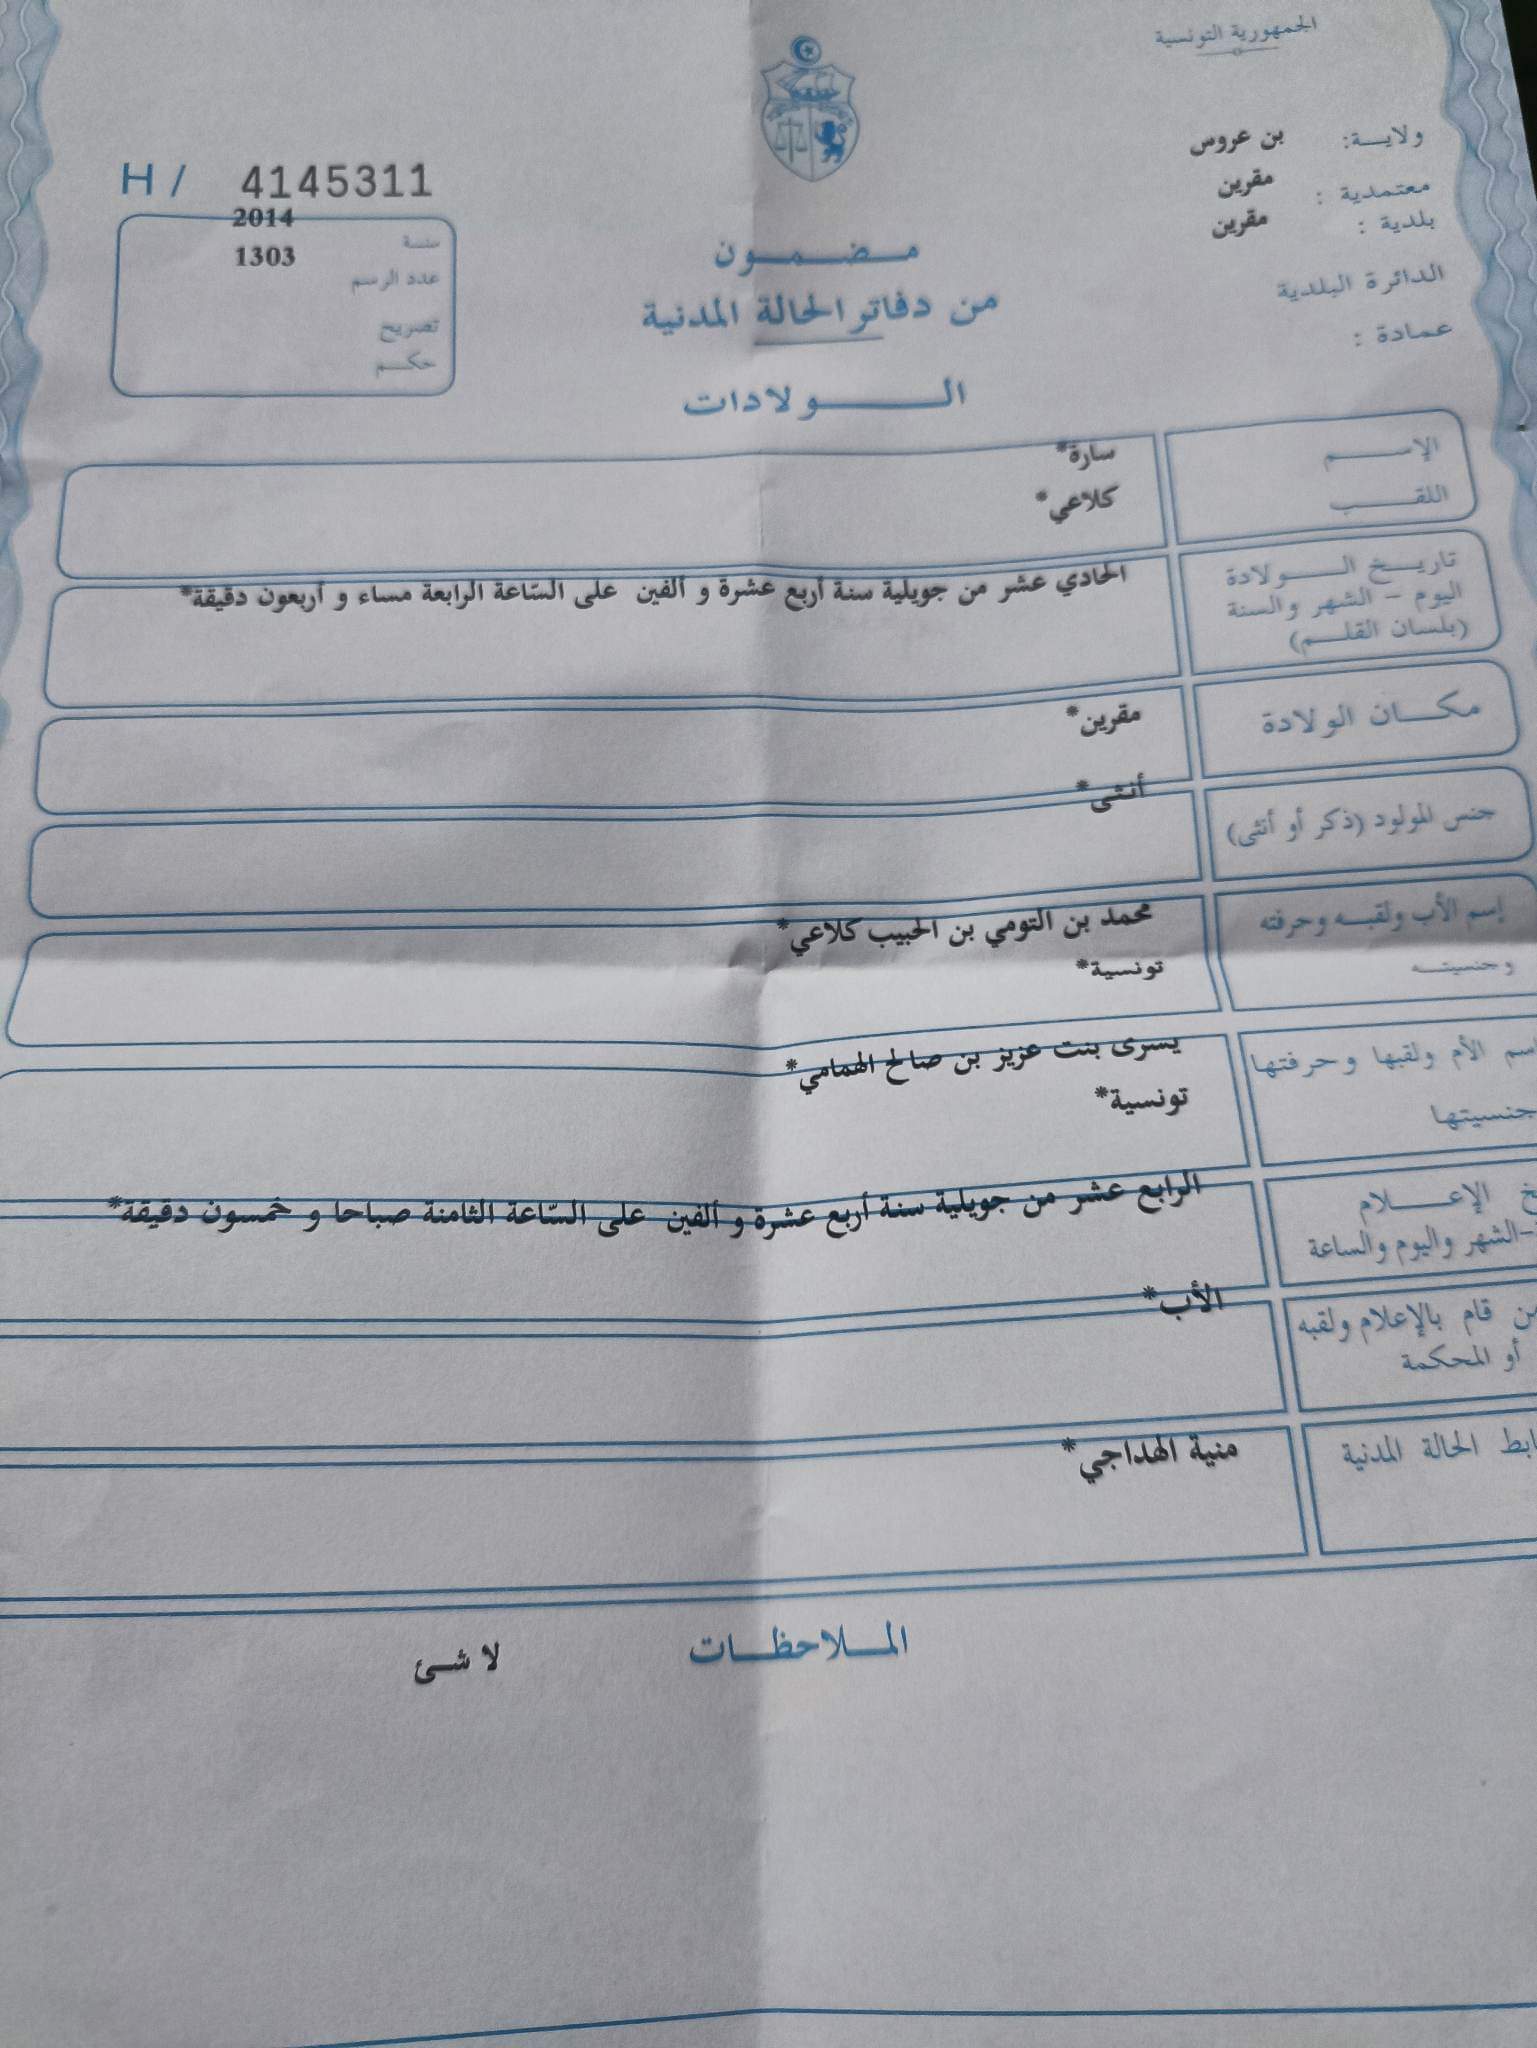 الجمهورية التونسية
ولايـــة: بن عروس
معتمدية : مقرين
بلدية : مقرين
الدائرة البلدية
عمادة :
H / 4145311
سنة 2014
عدد الرسم 1303
تصريح
حكـــم
مـــضـــمـــون
من دفاتر الحالة المدنية
الـــــولادات
الإســـــم سارة*
اللقـــــب كلاعي*
تاريـــخ الـــــولادة الحادي عشر من جويلية سنة أربع عشرة و ألفين على السّاعة الرابعة مساء و أربعون دقيقة*
اليوم - الشهر والسنة
(بلسان القلـــم)
مكـــان الولادة مقرين*
جنس المولود (ذكر أو أنثى) أنثى*
إسم الأب ولقبـــه وحرفته محمد بن التومي بن الحبيب كلاعي*
وجنسيتـــه تونسية*
سم الأم ولقبها وحرفتها يسرى بنت عزيز بن صالح الهمامي*
جنسيتها تونسية*
خ الإعـــــلام الرابع عشر من جويلية سنة أربع عشرة و ألفين على السّاعة الثامنة صباحا و خمسون دقيقة*
-الشهر واليوم والساعة
من قام بالإعلام ولقبه الأب*
أو المحكمة
ابط الحالة المدنية منية الهداجي*
المـــلاحظـــات
لا شئ